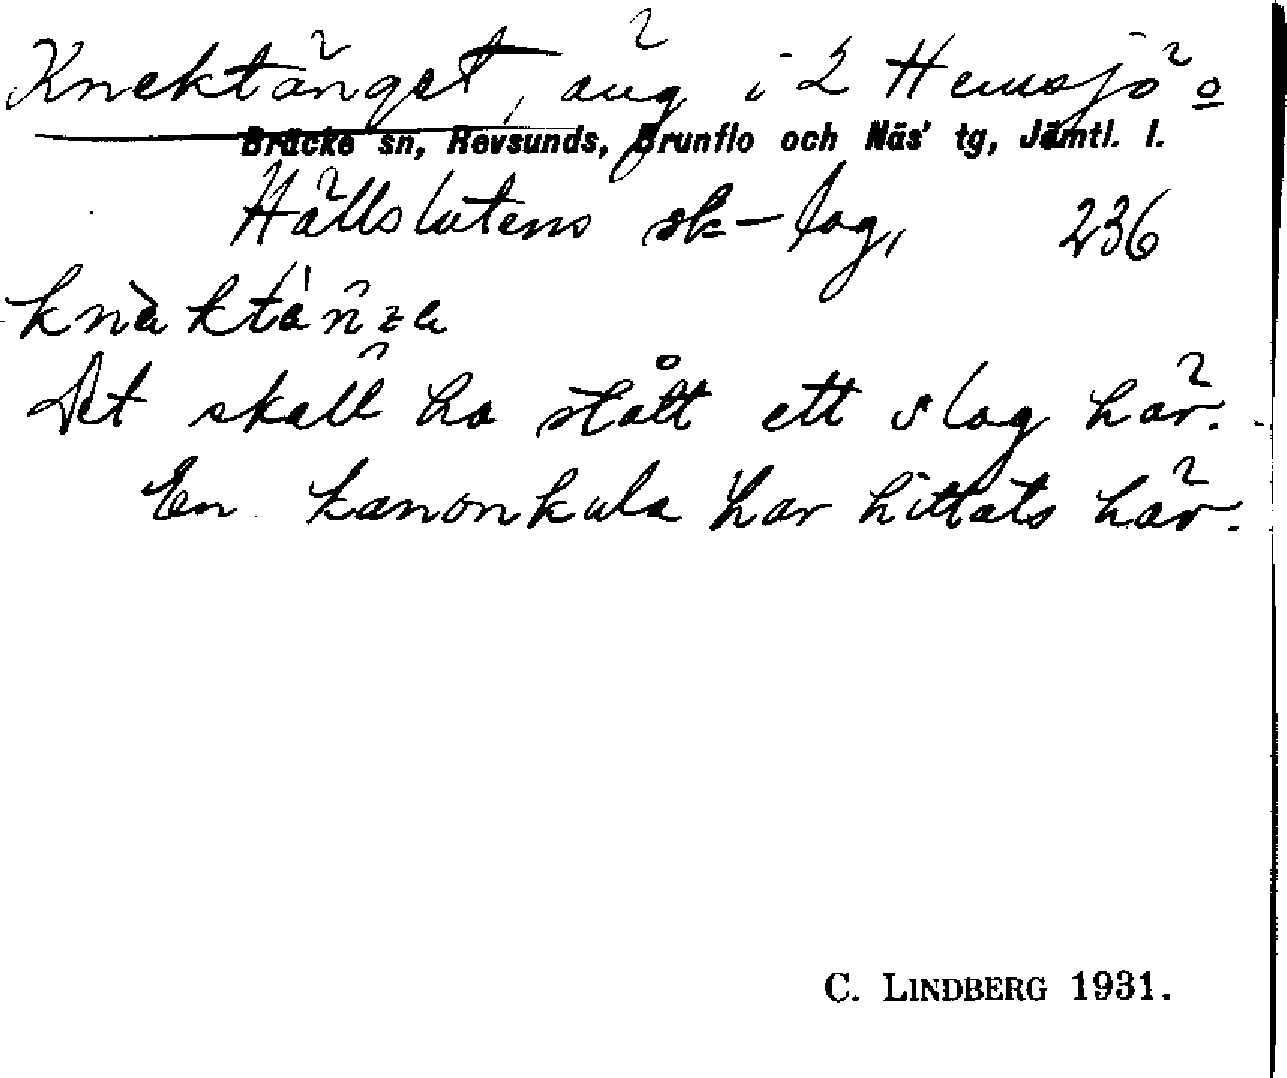 Knektänget, äng i 2 Hemsjö o
Bräcke sn, Revsunds, Brunflo och Näs' tg, Jämtl. l.
Hällslåtens sk-lag, 236
Det skall ha stått ett slag här.
En kanonkula har hittats här.
C. LINDBERG 1931.